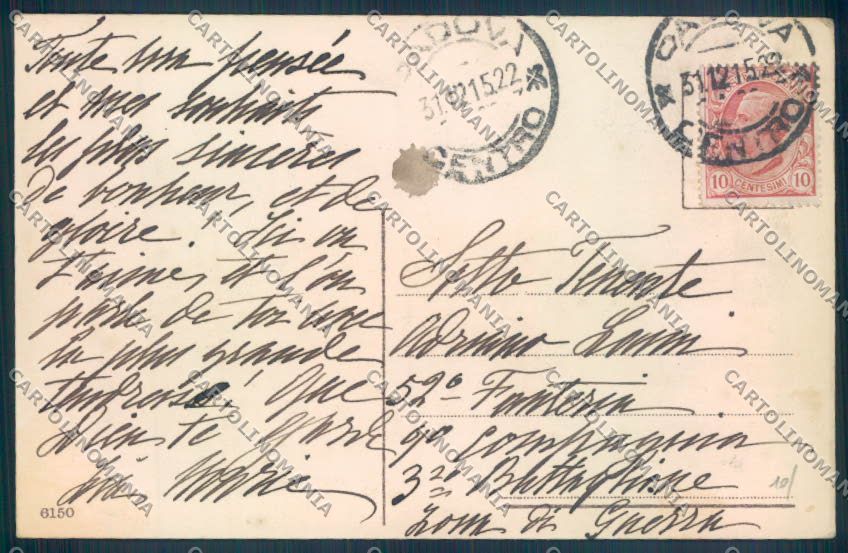 Toute ma pensée
et mes souhaits
les plus sincères
de bonheur, et de
gloire. Ici on
t'aime, et l'on
parle de toi avec
la plus grande
tendresse! que
Dieu te garde
Marie
6150
PADOVA
31.12.15.22
CENTRO
PADOVA
31.12.15.22
CENTRO
10 CENTESIMI 10
Sotto Tenente
Adriano
52º Fanteria
9ª Compagnia
3º Battaglione
Zona di Guerra
10
CARTOLINOMANIA